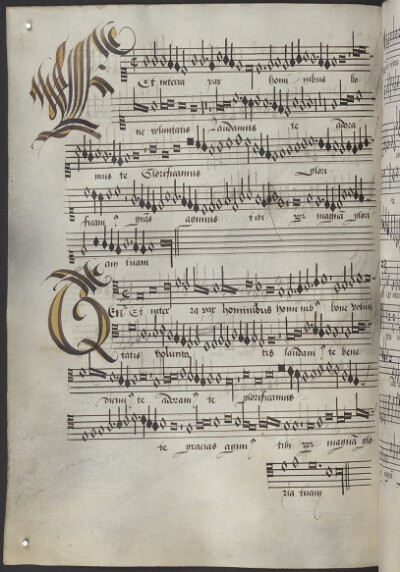 Et in terra pax homi nibus bo
ne voluntatis Laudamus te adora
mus te Glorificamus glori
ficam⁹ gr̄as agimus tibi ꝓp̄ magnā glori
am tuam
Et in ter ra pax hominibus homi nib⁹ bone volun
tatis volunta tis laudam⁹ te bene
dicim⁹ te adoram⁹ te glorificamus
te gracias agim⁹ tibi magnā glo
ria tuam